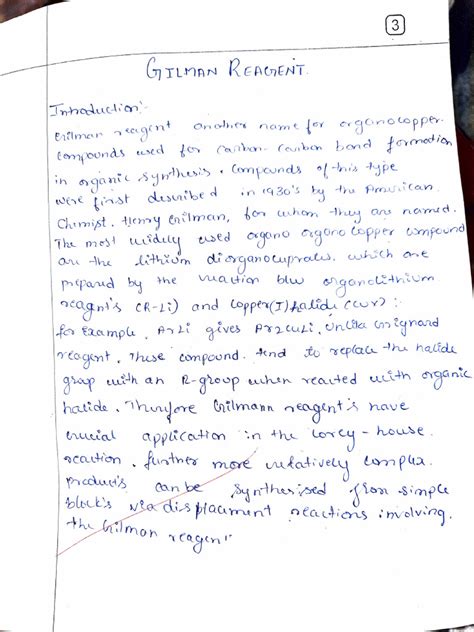 3
GILMAN REAGENT.
Introduction:-
Gilman reagent another name for organocopper
compounds used for carbon-carbon bond formation
in organic synthesis. Compounds of this type
were first described in 1930's by the American
Chemist. Henry Gilman, for whom they are named.
The most widely used organo organo copper compound
are the lithium diorganocuprates, which are
prepared by the reaction b/w organolithium
reagent's (R-Li) and copper(I) halide (CuX):
for Example, ArLi gives Ar2CuLi. Unlike Grignard
reagent. These compound. tend to replace the halide
group with an R-group when reacted with organic
halide. Therefore Gilmann reagent's have
crucial application in the corey-house.
reaction. further more relatively complex.
product's can be synthesised from simple
block's via displacement reactions involving.
the Gilman reagent